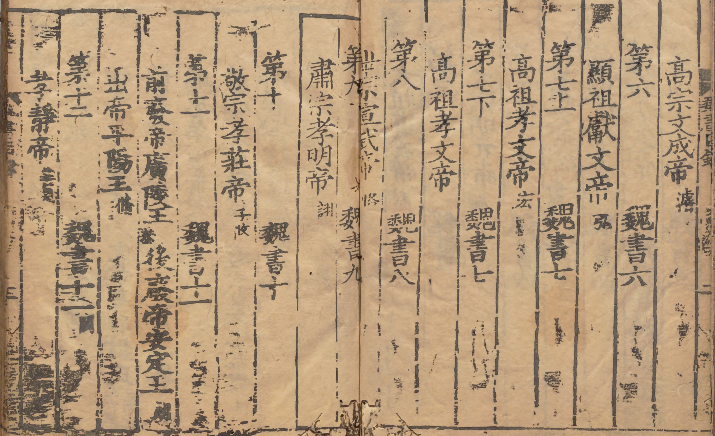 高宗文成帝濬
第六 魏書六
顯祖獻文帝弘
第七上 魏書七
高祖孝文帝宏
第七下 魏書七
高祖孝文帝
第八 魏書八
世宗宣武帝恪
第九 魏書九
肅宗孝明帝詡
第十 魏書十
敬宗孝莊帝子攸
第十一 魏書十一
前廢帝廣陵王恭 後廢帝安定王朗
出帝平陽王脩
第十二 魏書十二
孝靜帝